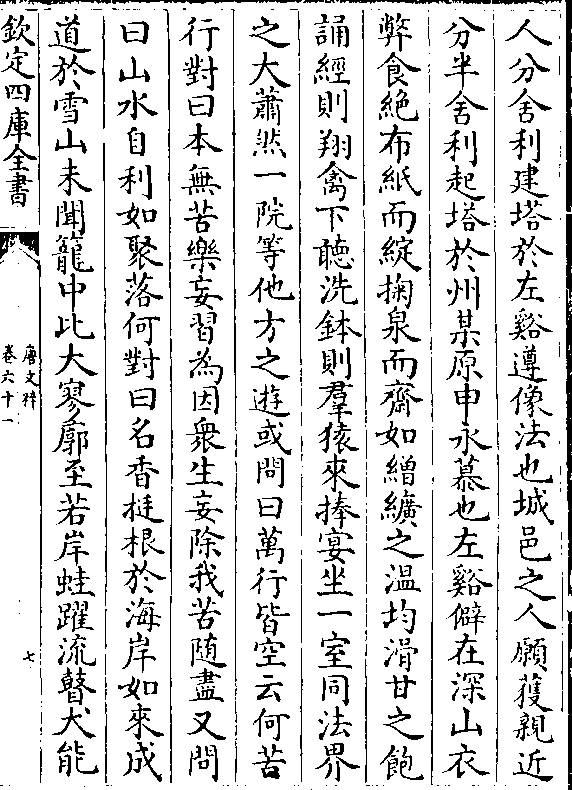 人分舍利建塔於左谿遵像法也城邑之人願獲親近
分半舍利起塔於州某原申永慕也左谿僻在深山衣
弊食絶布紙而綻掬泉而齋如繒纊之温均滑甘之飽
誦經則翔禽下聽洗鉢則羣猿來捧宴坐一室同法界
之大蕭然一院等他方之遊或問曰萬行皆空云何苦
行對曰本無苦樂妄習為因衆生妄除我苦随盡又問
曰山水自利如聚落何對曰名香挺根於海岸如來成
道於雪山未聞籠中比大寥廓至若岸蛙躍流瞽犬能
欽定四庫全書
唐文粹
卷六十一
七